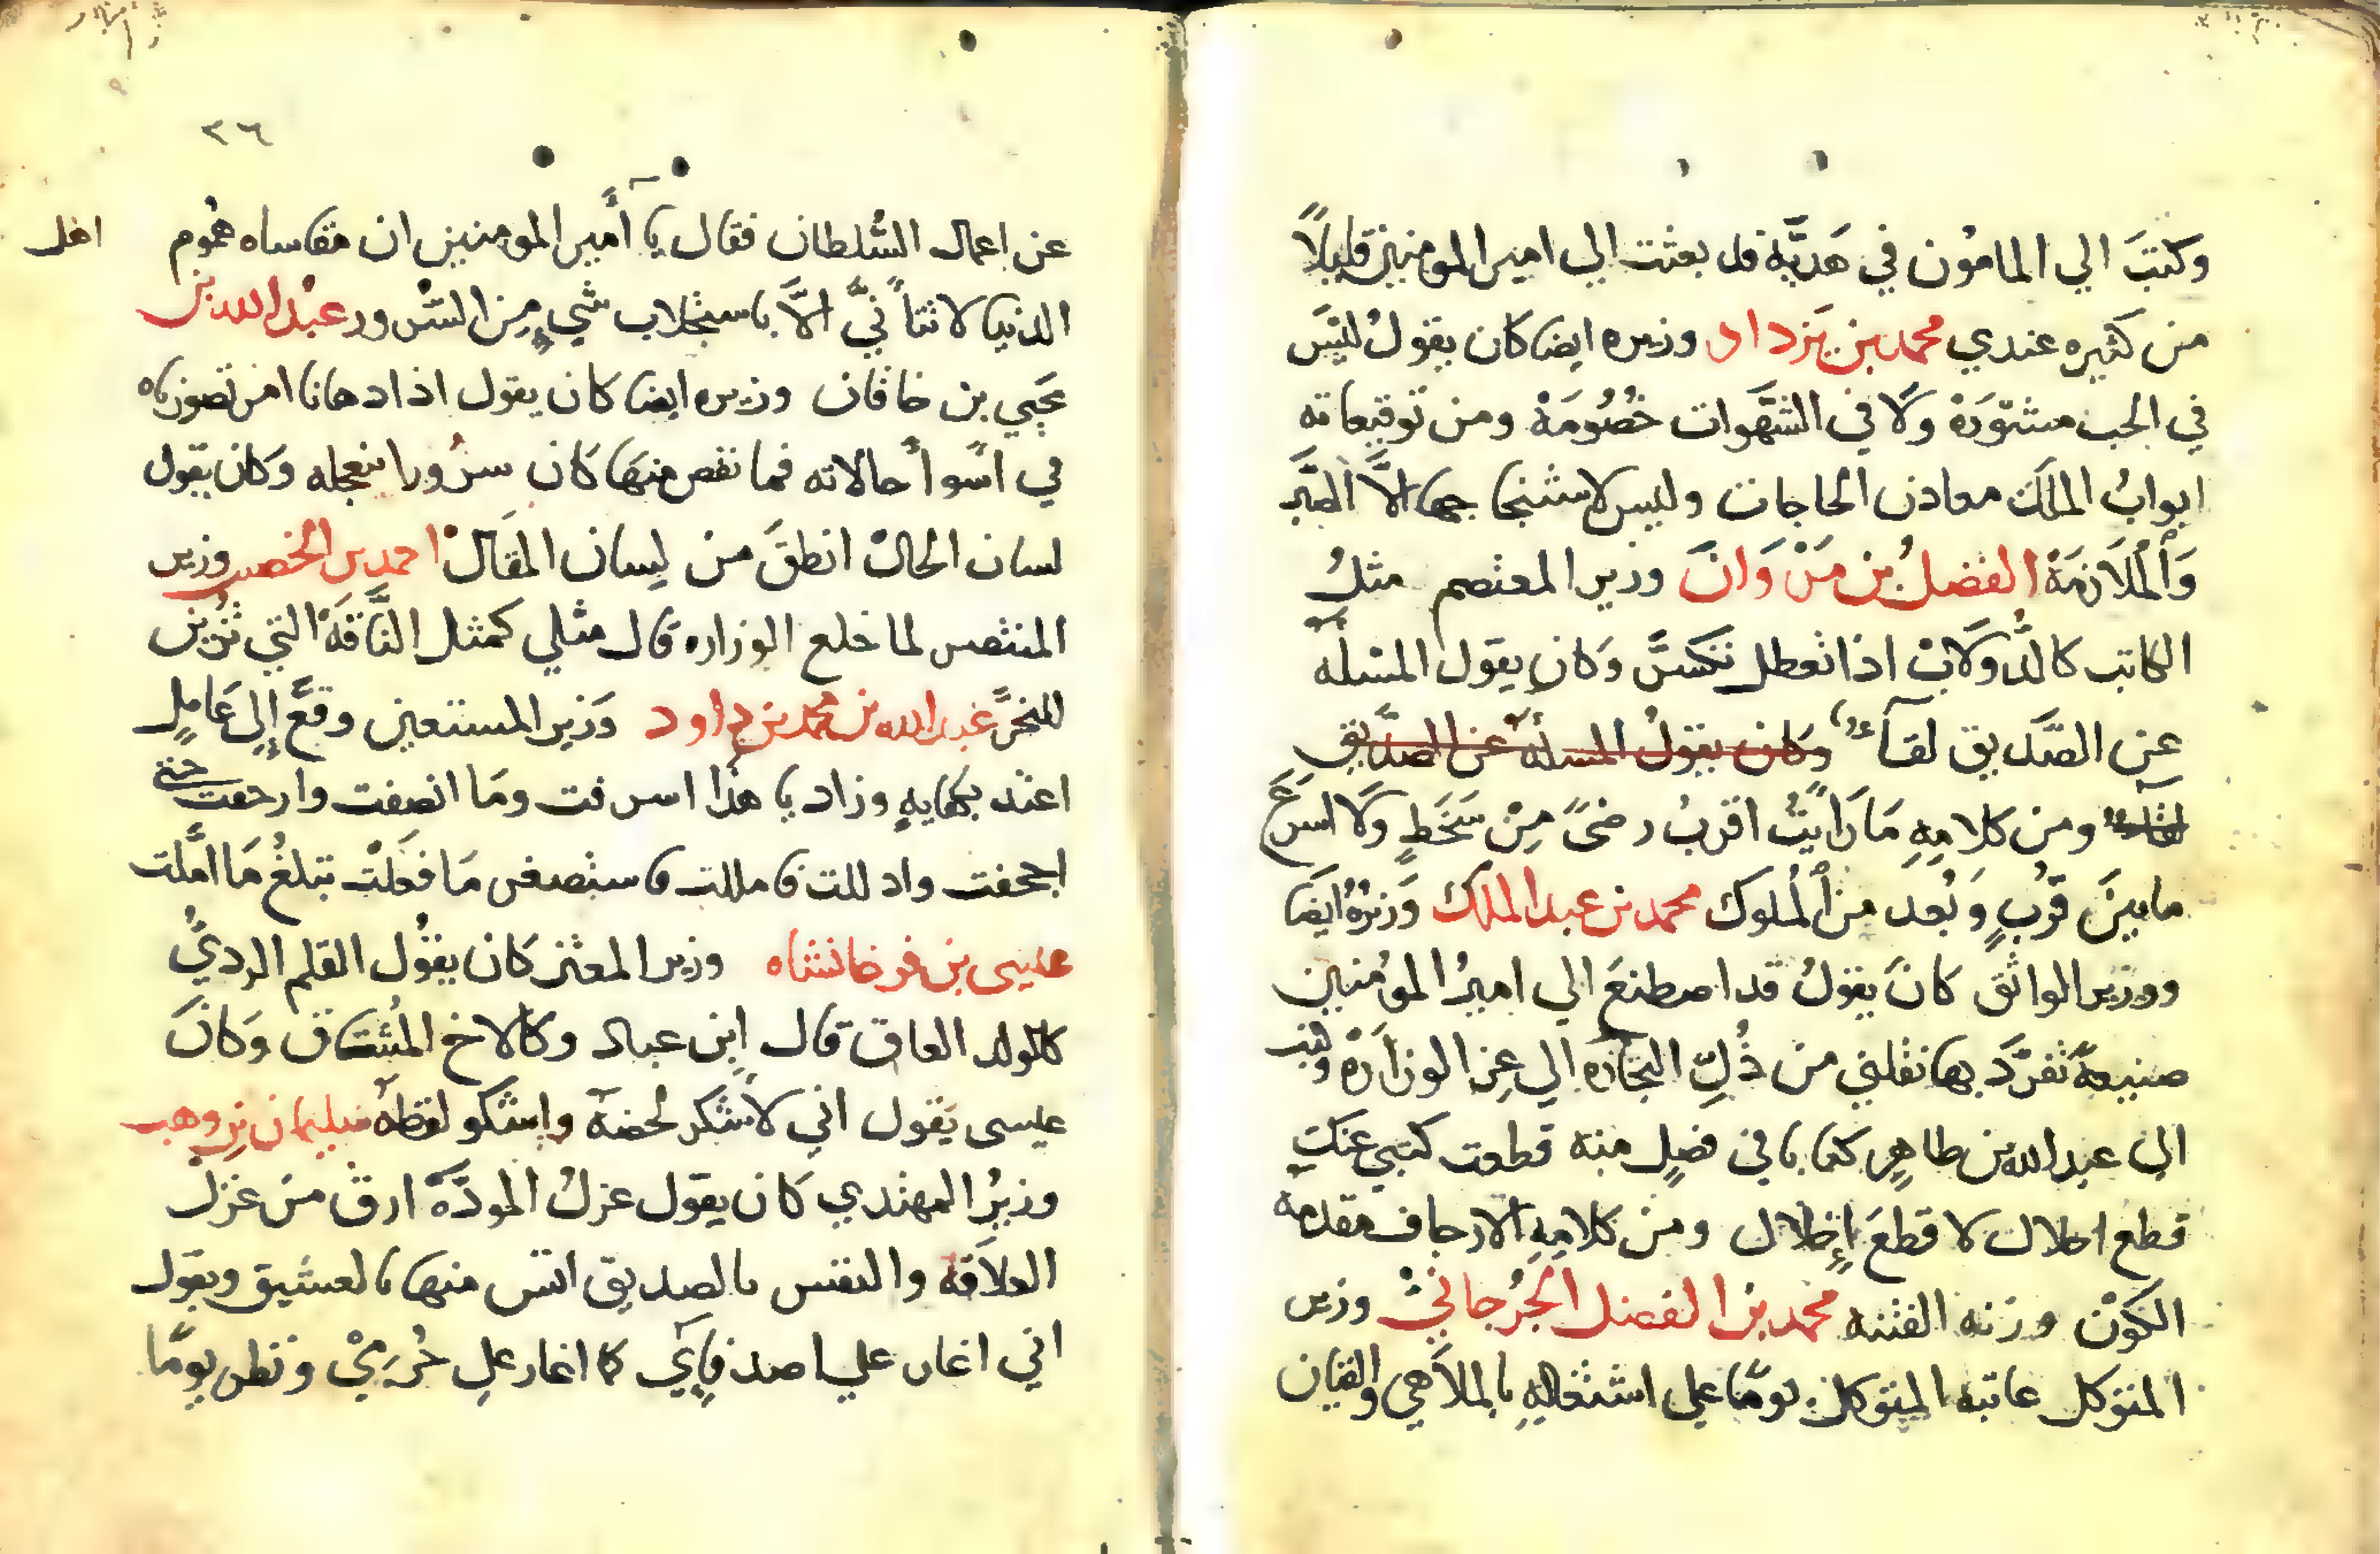 وكتبَ الي المامُون في هَديَّة قد بعثت الي امير المومنين قليلاً
من كثيره عندي محمد بن يَزداد وزيره ايضا كان يقولُ لليَس
في الحب مشوَرَة ولَا في الشهَوات خصُومَة ومن توقيعاته
ابوابُ الملك معادن الحاجات وليس لاستنجاحها الَّا الصَبر
وَالْملَازمَة الفضلُ بن مَرْوَانَ وزير المعتصم مثلُ
الكاتب كالدُّولَاب اذا تعطل تكسَّر وكان يقول المسلة
عن الصَديق لقآء وكان يقولُ المسلة عن الصديق
لقآء ومن كلامِهِ مَا رَايتُ اقربُ رضىً مِنْ سَخَطٍ ولَا اسرَع
ما بينَ قُربٍ وَ بُعد من الْملوك محمد بن عبد الملك وَزيرُهُ ايضا
ووزير الواثق كانَ يقولُ قد اصطنعَ الي اميرُ المؤمنين
صنيعةً تفرَّد بها نقلني من ذُلِّ التجَارَة الي عِز الوزَارَة وكتب
الي عبد الله بن طاهِرٍ كتابا في فصلٍ منه قطعت كتبي عنك
قطع اجلال لا قطعَ إِخلال ومن كلامِهِ الارجاف مقدمة
الكَوْن وزنه الفتنه محمد بن الفضل الجُرجانيّ وزير
المتوكل عاتبه المتوكل يومًا علي اشتغالِهِ بالملَاهي والقيان
٣٦
عن اعمال السُّلطان فقال يا أَمير المومنين ان مقاساه هُموم
اهل
الدنيا لا تتأَتيَّ الاَّ باستجلاب شيءٍ مِن السُّرور عبْد الله بن
يحيي بن خاقان وزيره ايضا كان يقول اذا دهانا امر تصورناه
في اسَوأ حالاته فما نقص منهَا كَان سرُورا نتعجله وَكان يقول
لسان الحال انطقَ من لِسان المقَال احمد بن الخصيب وزير
المنتصر لما خلع الوزاره قال مثلي كمثل النَّاقَة التي تُزين
للنحَر عبد الله بن محمد بن داود وَزير المستعين وقعَّ إِلي عَامِلٍ
اعتد بكفايةٍ وزاد يا هذا اسرفت ومَا انصفت وارجفت حتى
اجحفت وادللت فامللت فاستصغر مَا فعَلْت تبلغُ مَا امَّلت
عيسى بن فرخانشاه وزير المعتز كان يقُول القلم الرديُّ
كالولد العاق قال اِبن عباد وكالاخ المُشَاق وَكانَ
عيسى يَقول اني لاَشكر لحضة واشكو لفظة سليمان بن وهب
وزيرُ المهتدي كَان يقول غزلُ المودَّة ارق من غزل
العلَاقة والنفس بالصديق انس منها بالعشيق ويقول
اني اغار علي اصدقايَي كما اغار علي حُرَمِيْ ونظر يومًا